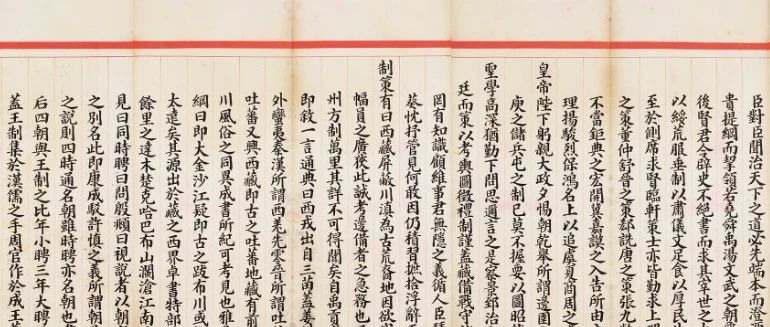 臣對臣聞治天下之道必先端本而澄源
貴提綱而挈領若堯舜禹湯文武之朝
後賢君令辟史不絕書而求其宰世之
以綏荒服垂制以肅儀文足食以厚民
至於側席求賢臨軒策士亦皆勤求上
之策董仲舒晉之策郄詵唐之策張九
不當鉅典之宏開翼嘉謨之入告所由
理揚駿烈保鴻名上以追虞夏商周之
皇帝陛下躬親大政夕惕朝乾舉所謂邊圉
庾之儲兵屯之制已莫不握要以圖昭
聖學高深猶勤下問思邇言之是察郅治
廷而策以考輿圖徵禮制謹蓋藏備戰守
罔有知識顧維事君無隱之義循人臣拜
葵忱抒管見何敢因仍積習摭拾浮辭
制策有曰西藏屏蔽川滇為古荒裔地因欲
幅員之廣狹此誠考邊備者之急務也
州方制萬里其詳不可得聞矣自禹貢
即敘一言通典曰西戎出自三苗蓋姜
外蠻夷秦漢所謂西羌先零所謂吐
吐蕃又興西藏即古之吐蕃地藏有前
川風俗之同異成書所紀可考見也雅
綱曰即大金沙江疑即古之跋布川或
太遠矣其源出於藏之西界卓書特部
餘里之達木楚克哈巴布山瀾滄江南
見曰同時聘曰問殷頫曰視說者以朝
之別名此即康成駮許慎之義所謂朝
之說則四時通名朝雖時聘亦名朝也
后四朝與王制之比年小聘三年大聘
蓋王制集於漢儒之手周官作於成王